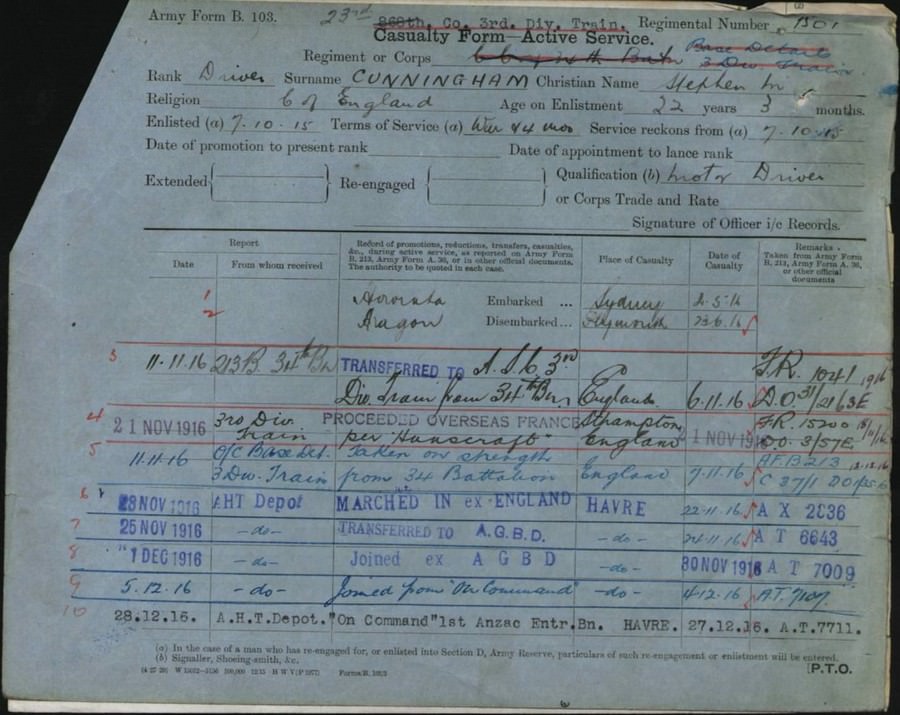 Army Form B. 103.
23rd 868th. Co. 3rd. Div. Train. Regimental Number 1501
Casualty Form—Active Service.
Regiment or Corps 34th Batn Base Details
3 Div. Train
Rank Driver Surname CUNNINGHAM Christian Name Stephen
Religion C of England Age on Enlistment 22 years 3 months.
Enlisted (a) 7.10.15 Terms of Service (a) War & 4 mos Service reckons from (a) 7.10.15
Date of promotion to present rank Date of appointment to lance rank
Extended Re-engaged Qualification (b) Motor Driver
or Corps Trade and Rate
Signature of Officer i/c Records.
Report
Date From whom received
Record of promotions, reductions, transfers, casualties, &c., during active service, as reported on Army Form B. 213, Army Form A. 36, or in other official documents. The authority to be quoted in each case.
Place of Casualty
Date of Casualty
Remarks
Taken from Army Form B. 213, Army Form A. 36, or other official documents
1 Embarked ... Sydney 2.5.16
2 Aragon Disembarked... Plymouth 23.6.16
3 11.11.16 213B. 34th Bn TRANSFERRED TO A.S.C. 3rd F.R. 1041 1916
Div. Train from 34th Bn England 6.11.16 D.O. 31/2163E
4 21 NOV 1916 3rd Div. Train PROCEEDED OVERSEAS FRANCE S'hampton 1 NOV 1916 F.R. 15200
per "Hunscraft" England DO. 3/57E
5 11.11.16 O/C Base Det. Taken on strength A.F.B.213 12.12.16
3 Div. Train from 34 Battalion England 7.11.16 C 37/1
6 23 NOV 1916 AHT Depot MARCHED IN ex-ENGLAND HAVRE 22.11.16 A X 2636
7 25 NOV 1916 -do- TRANSFERRED TO A.G.B.D. -do- 24.11.16 A T 6643
8 1 DEC 1916 -do- Joined ex A G B D -do- 30 NOV 1916 A T 7009
9 5.12.16 -do- Joined from "On Command" -do- 4.12.16 A.T. 7107
10 28.12.16. A.H.T.Depot. "On Command"1st Anzac Entr.Bn. HAVRE. 27.12.16. A.T.7711.
(a) In the case of a man who has re-engaged for, or enlisted into Section D, Army Reserve, particulars of such re-engagement or enlistment will be entered.
(b) Signaller, Shoeing-smith, &c.
Forms/B. 103/3
[P.T.O.